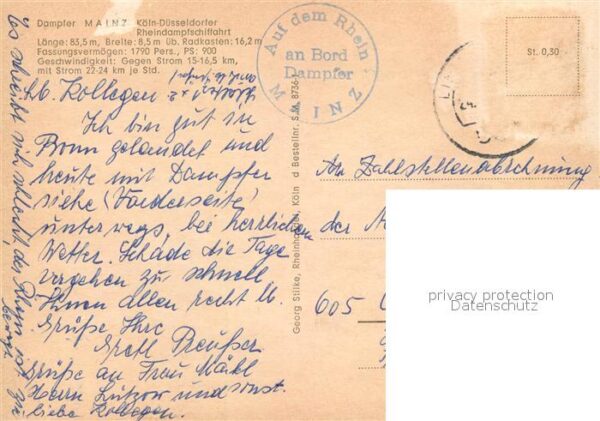 Dampfer MAINZ Köln-Düsseldorfer
Rheindampfschiffahrt
Länge: 83,5 m, Breite: 8,5 m üb. Radkasten: 16,2 m
Fassungsvermögen: 1790 Pers., PS: 900
Geschwindigkeit: Gegen Strom 15-16,5 km,
mit Strom 22-24 km je Std.
Auf dem Rhein
an Bord
Dampfer
MAINZ
St. 0,30
Lb. Kollegen
Ich bin gut in
Bonn gelandet und
heute mit Dampfer
siehe (Vorderseite)
unterwegs, bei herrlichen
Wetter. Schade die Tage
vergehen zu schnell
Ihnen allen recht lb.
Grüße Ihre
Gretl Preußer
Grüße an Frau Mäkl
Herrn Lützow und sonst.
liebe Kollegen.
Es schreibt sich schlecht, der Rhein ist zu
bewegt.
Georg Stilke, Rheinha
d Bestellnr. S M 8736
An Zahlstellenabrechnung
der
605
privacy protection
Datenschutz